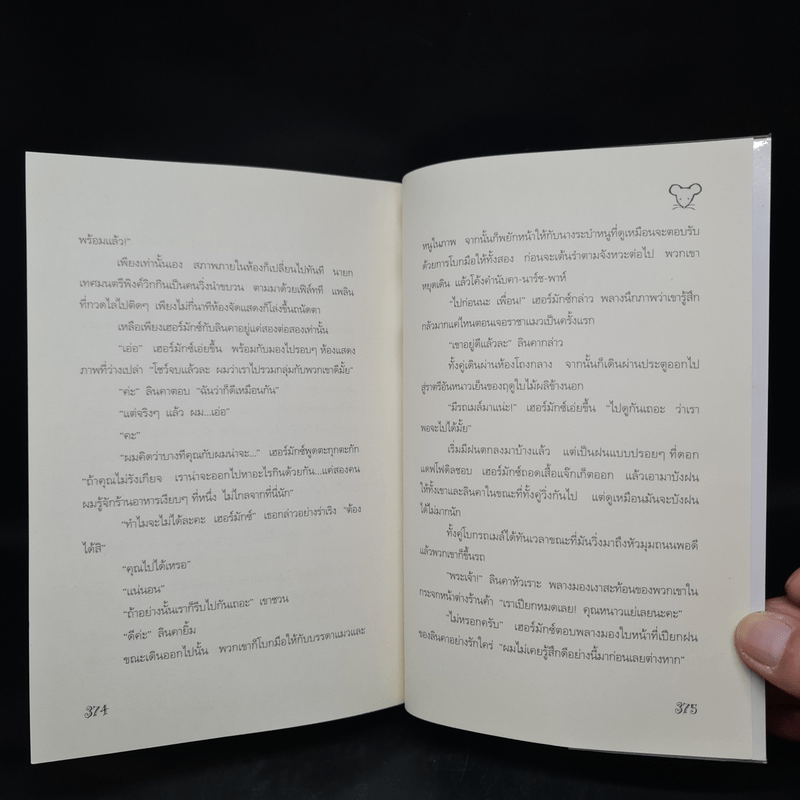 พร้อมแล้ว!"
เพียงเท่านั้นเอง สภาพภายในห้องก็เปลี่ยนไปทันที นายก
เทศมนตรีพิงค์วิกกินเป็นคนวิ่งนำขบวน ตามมาด้วยเฟิส์ทที แพลิน
ที่กวดไล่ไปติดๆ เพียงไม่กี่นาทีห้องจัดแสดงก็โล่งขึ้นถนัดตา
เหลือเพียงเฮอร์มักซ์กับลินคาอยู่แค่สองต่อสองเท่านั้น
"เอ่อ" เฮอร์มักซ์เอ่ยขึ้น พร้อมกับมองไปรอบๆ ห้องแสดง
ภาพที่ว่างเปล่า "โชว์จบแล้วละ ผมว่าเราไปรวมกลุ่มกับพวกเขาดีมั้ย"
"ค่ะ" ลินคาตอบ "ฉันว่าก็ดีเหมือนกัน"
"แต่จริงๆ แล้ว ผม...เอ่อ"
"คะ"
"ผมคิดว่าบางทีคุณกับผมน่าจะ..." เฮอร์มักซ์พูดตะกุกตะกัก
"ถ้าคุณไม่รังเกียจ เราน่าจะออกไปหาอะไรกินด้วยกัน...แค่สองคน
ผมรู้จักร้านอาหารเงียบๆ ที่หนึ่ง ไม่ไกลจากที่นี่นัก"
"ทำไมจะไม่ได้ละคะ เฮอร์มักซ์" เธอกล่าวอย่างร่าเริง "ต้อง
ได้สิ"
"คุณไปได้เหรอ"
"แน่นอน"
"ถ้าอย่างนั้นเราก็รีบไปกันเถอะ" เขาชวน
"ดีค่ะ" ลินคายิ้ม
ขณะเดินออกไปนั้น พวกเขาก็โบกมือให้กับบรรดาแมวและ
374
หนูในภาพ จากนั้นก็พยักหน้าให้กับนางระบำหนูที่ดูเหมือนจะตอบรับ
ด้วยการโบกมือให้ทั้งสอง ก่อนจะเต้นรำตามจังหวะต่อไป พวกเขา
หยุดเดิน แล้วโค้งคำนับคา-นาร์ช-พาห์
"ไปก่อนนะ เพื่อน!" เฮอร์มักซ์กล่าว พลางนึกภาพว่าเขารู้สึก
กลัวมากแค่ไหนตอนเจอราชาแมวเป็นครั้งแรก
"เขาอยู่ดีแล้วละ" ลินคากล่าว
ทั้งคู่เดินผ่านห้องโถงกลาง จากนั้นก็เดินผ่านประตูออกไป
สู่ราตรีอันหนาวเย็นของฤดูใบไม้ผลิข้างนอก
"มีรถเมล์มาแน่ะ!" เฮอร์มักซ์เอ่ยขึ้น "ไปดูกันเถอะ ว่าเรา
พอจะไปได้มั้ย"
เริ่มมีฝนตกลงมาบ้างแล้ว แต่เป็นฝนแบบปรอยๆ ที่ดอก
แดฟโฟดิลชอบ เฮอร์มักซ์ถอดเสื้อแจ๊กเก็ตออก แล้วเอามาบังฝน
ให้ทั้งเขาและลินคาในขณะที่ทั้งคู่วิ่งกันไป แต่ดูเหมือนมันจะบังฝน
ได้ไม่มากนัก
ทั้งคู่โบกรถเมล์ได้ทันเวลาขณะที่มันวิ่งมาถึงหัวมุมถนนพอดี
แล้วพวกเขาก็ขึ้นรถ
"พระเจ้า!" ลินคาหัวเราะ พลางมองเงาสะท้อนของพวกเขาใน
กระจกหน้าต่างร้านค้า "เราเปียกหมดเลย! คุณหนาวแย่เลยนะคะ"
"ไม่หรอกครับ" เฮอร์มักซ์ตอบพลางมองใบหน้าที่เปียกฝน
ของลินคาอย่างรักใคร่ "ผมไม่เคยรู้สึกดีอย่างนี้มาก่อนเลยต่างหาก"
375